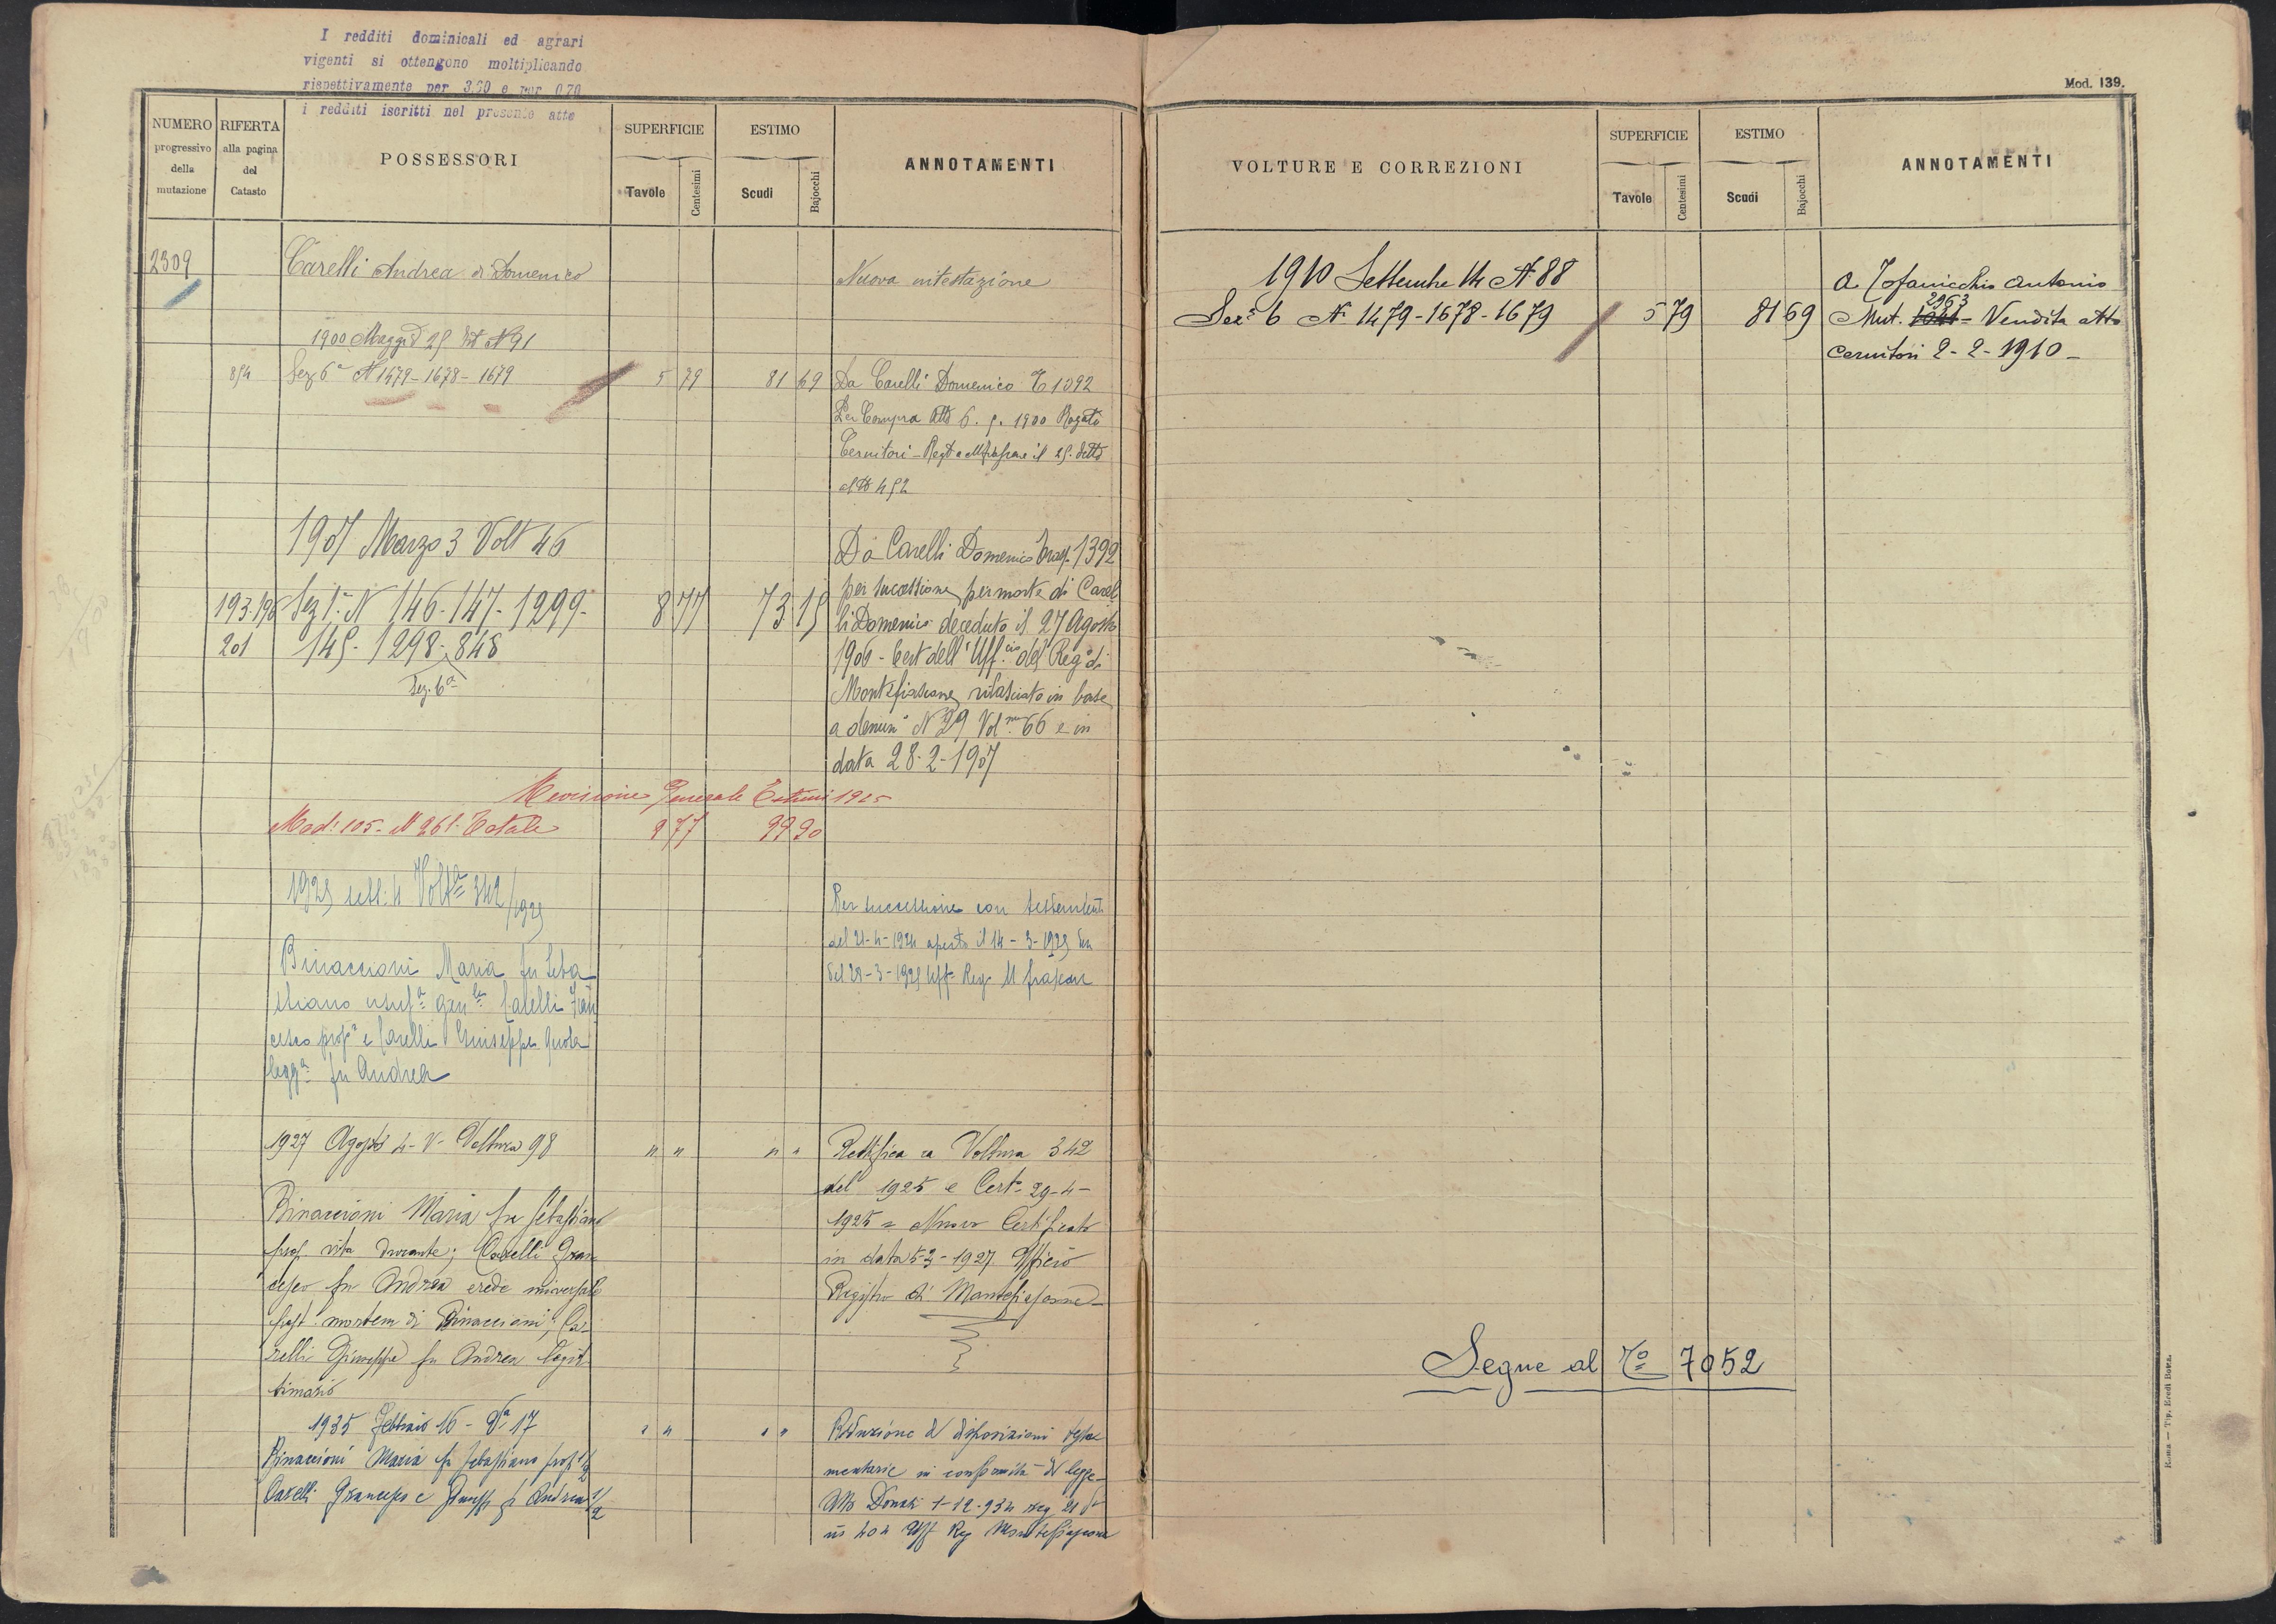 I redditi dominicali ed agrari
vigenti si ottengono moltiplicando
rispettivamente per 3.60 e per 0.70
i redditi iscritti nel presente atto
NUMERO
progressivo
della
mutazione
RIFERTA
alla pagina
del
Catasto
POSSESSORI
SUPERFICIE
Tavole
Centesimi
ESTIMO
Scudi
Bajocchi
ANNOTAMENTI
2309
Carelli Andrea di Domenico
Nuova intestazione
1900 Maggio 25 N 91
854 Sez 6ª N 1479-1678-1679 5 79 81 69 Da Carelli Domenico T 1392
Per Compra Atto 6. 5. 1900 Rogato
Cernitori - Regto a Mfiascone il 25 detto
al No 452
1907 Marzo 3 Volt 46
Da Carelli Domenico Trasp. 1392
193.196 Sez 1ª N 146-147-1299- 8 77 73 15 per successione per morte di Carel
201 145-1298-848
Sez. 6ª
li Domenico deceduto il 27 Agosto
1906 - Cert dell'Uff.cio del Reg di
Montefiascone rilasciato in base
a denun N 29 Vol 66 e in
data 28-2-1907
Revisione Generale Estimi 1925
Mod: 105- N 261- Totale 9 77 99 90
1925 sett: 4 Voltª 342/1925
Per successione con testamento
del 21-4-1924 aperto il 14-3-1925
del 29-3-1925 Uff Reg M fiascone
Binaccioni Maria fu Seba
stiano usufª genle Carelli Fran
cesco propº e Carelli Giuseppe quota
leggª fu Andrea
1927 Agosto 4-V- Voltura 98 " " " " Rettifica a Voltura 342
del 1925 e Certº 29-4-
1925 = Nuovo Certificato
in data 5-3-1927 Ufficio
Registro di Montefiascone
Binaccioni Maria fu Sebastiano
prop vita durante; Carelli Fran
cesco fu Andrea erede universale
post mortem di Binaccioni; Ca-
relli Giuseppe fu Andrea legit
timario
1935 Febbraio 16 - Vª 17 " " " " Riduzione di disposizioni testa
mentarie in conformità di legge
Binaccioni Maria fu Sebastiano prop 1/2
Carelli Francesco e Giusepp fu Andrea 1/2
Atto Donati 1-12-934 reg 21
404 Uff Reg Montefiascone
Mod. 139.
VOLTURE E CORREZIONI
SUPERFICIE
Tavole
Centesimi
ESTIMO
Scudi
Bajocchi
ANNOTAMENTI
1910 Settembre 14 N 88
a Tofanicchio Antonio
2963
Sezº 6 N 1479-1678-1679 5 79 81 69 Mut. = Vendita atto
Cernitori 2-2-1910 -
Segue al Tº 7052
Roma — Tip. Eredi Botta.